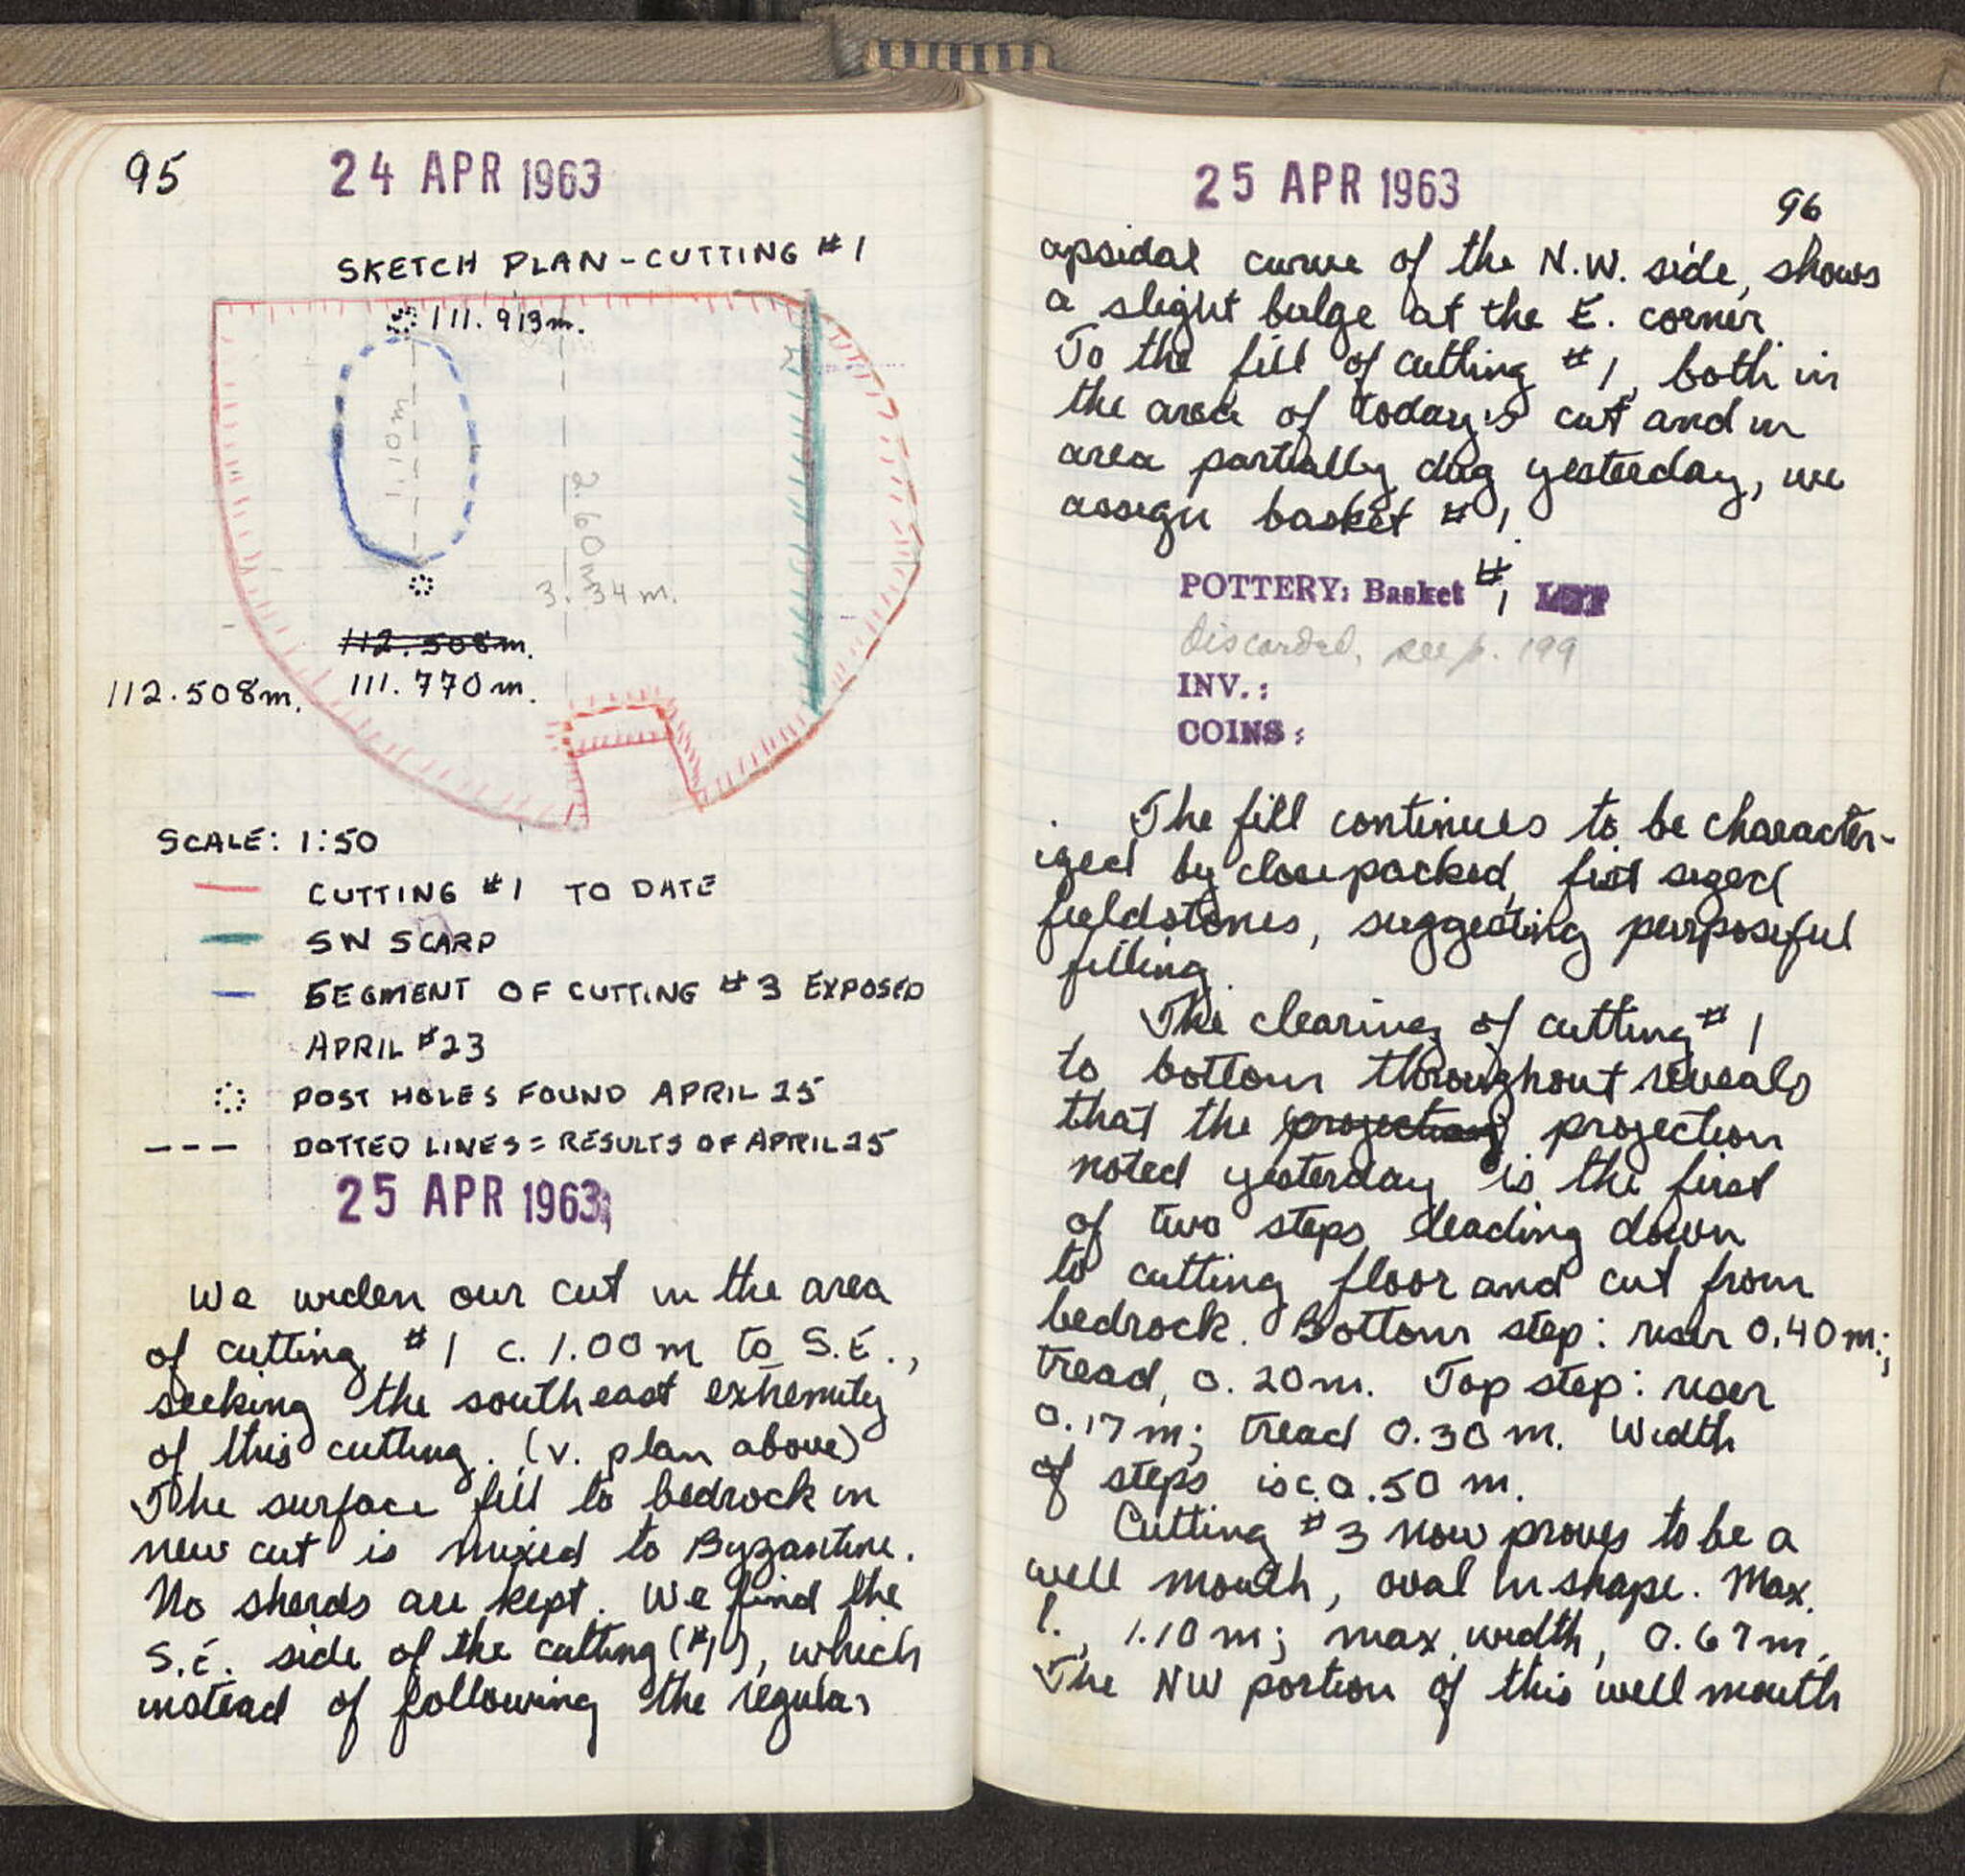 95
24 APR 1963
SKETCH PLAN-CUTTING #1
111.913m.
1.10m
2.60m
3.34m.
112.508m.
112.508m. 111.770m.
SCALE: 1:50
CUTTING #1 TO DATE
SW SCARP
SEGMENT OF CUTTING #3 EXPOSED
APRIL #23
POST HOLES FOUND APRIL 25
--- DOTTED LINES = RESULTS OF APRIL 25
25 APR 1963
We widen our cut in the area
of cutting #1 c. 1.00m to S.E.,
seeking the southeast extremity
of this cutting. (v. plan above)
The surface fill to bedrock in
new cut is mixed to Byzantine.
No sherds are kept. We find the
S.E. side of the cutting (#1), which
instead of following the regular
25 APR 1963
96
apsidal curve of the N.W. side, shows
a slight bulge at the E. corner.
To the fill of cutting #1, both in
the area of today's cut and in
area partially dug yesterday, we
assign basket #1.
POTTERY: Basket #1 LOT
Discarded, see p. 199
INV.:
COINS:
The fill continues to be character-
ized by close packed, fist sized
fieldstones, suggesting purposeful
filling.
The clearing of cutting #1
to bottom throughout reveals
that the (projection) projection
noted yesterday is the first
of two steps leading down
to cutting floor and cut from
bedrock. Bottom step: riser 0.40m.;
tread, 0.20m. Top step: riser
0.17m; tread 0.30m. Width
of steps is c. 0.50m.
Cutting #3 now proves to be a
well mouth, oval in shape. Max.
l., 1.10m; max. width, 0.67m.
The NW portion of this well mouth